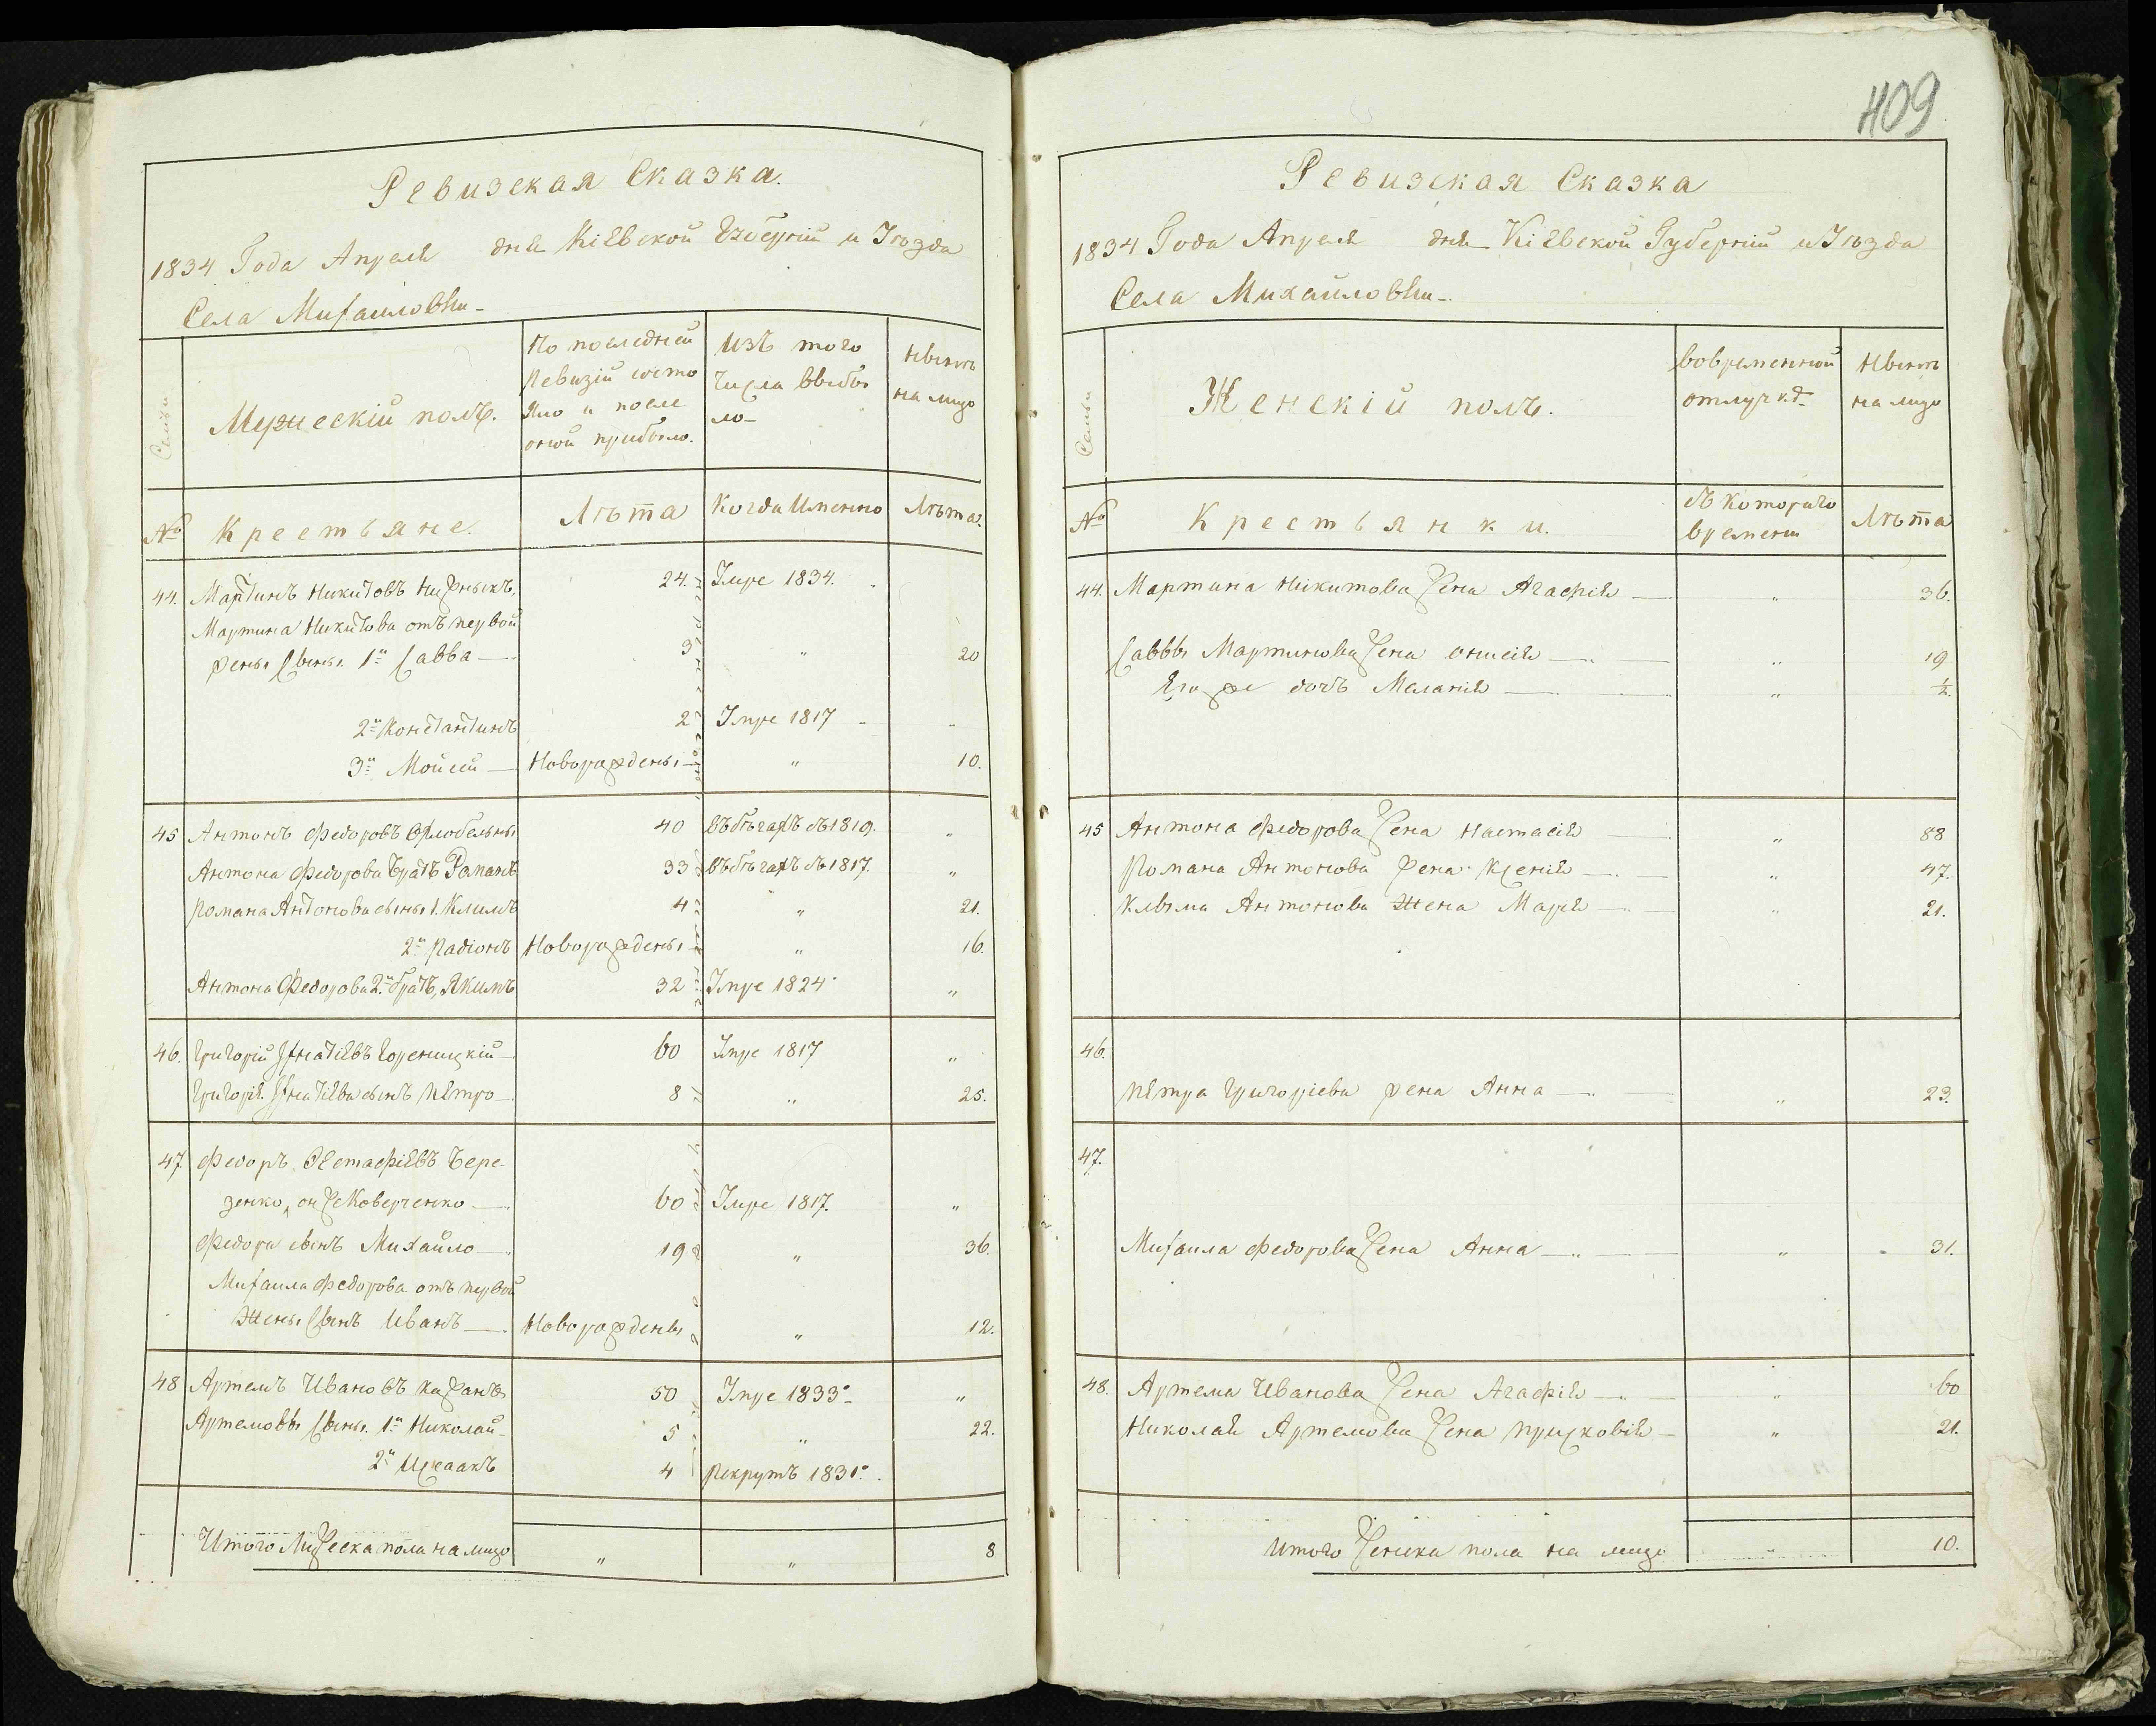 Ревизская Сказка.
1834 Года Апреля дня Кіевской Губерніи и Уѣзда
Села Михайловки
Семьи
Мужескій полъ.
По последней
Ревизіи состо
яло и после
оной прибыло.
Изъ того
Числа выбы
ло
Нынѣ
на лицо
№
Крестьяне.
Лѣта
Когда Именно
Лѣта.
44. Мартинъ Никитовъ 24. Умре 1834.
Мартина Никитова отъ первой
жены сыны 1й Савва 3 " 20
2й Константинъ 2 Умре 1817 "
3й Мойсей Новорожденны " 10.
45 Антонъ Федоровъ 40 Въ бѣгахъ съ 1819. "
Антона Федорова братъ Романъ 33 Въ бѣгахъ съ 1817. "
Романа Антонова сыны 1. Климъ 4 " 21.
2й Радіонъ Новорожденны " 16.
Антона Федорова 2й братъ, Якимъ 32 Умре 1824 "
46. Григорій Игнатіевъ Гореницкій 60 Умре 1817 "
Григорія Игнатіева сынъ Петро 8 " 25.
47 Федоръ Естафіевъ Бере-
зенко, онже Коверченко 60 Умре 1817. "
Федора сынъ Михайло 19 " 36.
Михаила Федорова отъ первой
жены сынъ Иванъ Новорожденны " 12.
48 Артемъ Ивановъ 50 Умре 1833 "
Артемовы сыны 1й Николай 5 " 22.
2й Исаакъ 4 Рекрутъ 1831
Итого Мужеска пола на лицо " " 8
409
Ревизская Сказка
1834 Года Апреля дня Кіевской Губерніи и Уѣзда
Села Михайловки
Семьи
Женскій полъ.
вовременной
отлучкѣ
Нынѣ
на лицо
№
Крестьянки.
съ котораго
времени
Лѣта
44. Мартина Никитова жена Агафія " 36.
Саввы Мартинова жена " 19
Его же дочь Меланія " ½.
45 Антона Федорова жена Настасія " 88
Романа Антонова жена Ксенія " 47.
Клыма Антонова жена Марія " 21.
46.
Петра Григоріева жена Анна " 23.
47.
Михаила Федорова жена Анна " 31.
48. Артема Иванова жена Агафія " 60
Николая Артемова жена Присковія " 21.
Итого женска пола на лицо " 10.